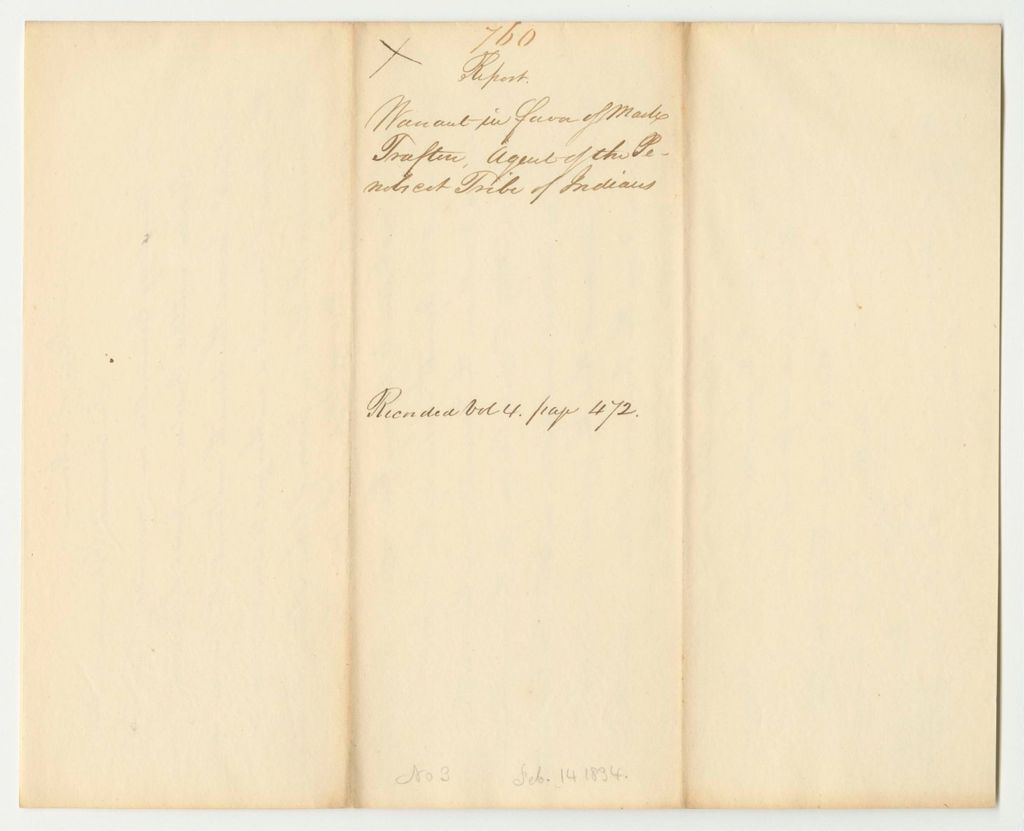 760
X
Report.
Warrant in favor of Mark
Trafton, Agent of the Pe-
nobscot Tribe of Indians
Recorded Vol 4. page 472.
No 3 Feb. 14 1834.